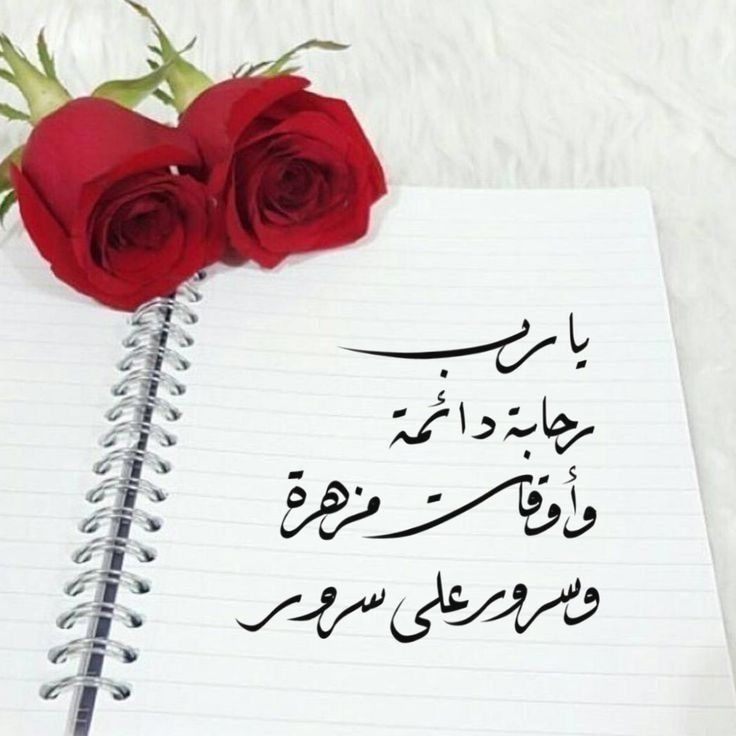 يا رب
رحابة دائمة
وأوقات مزهرة
وسرور على سرور